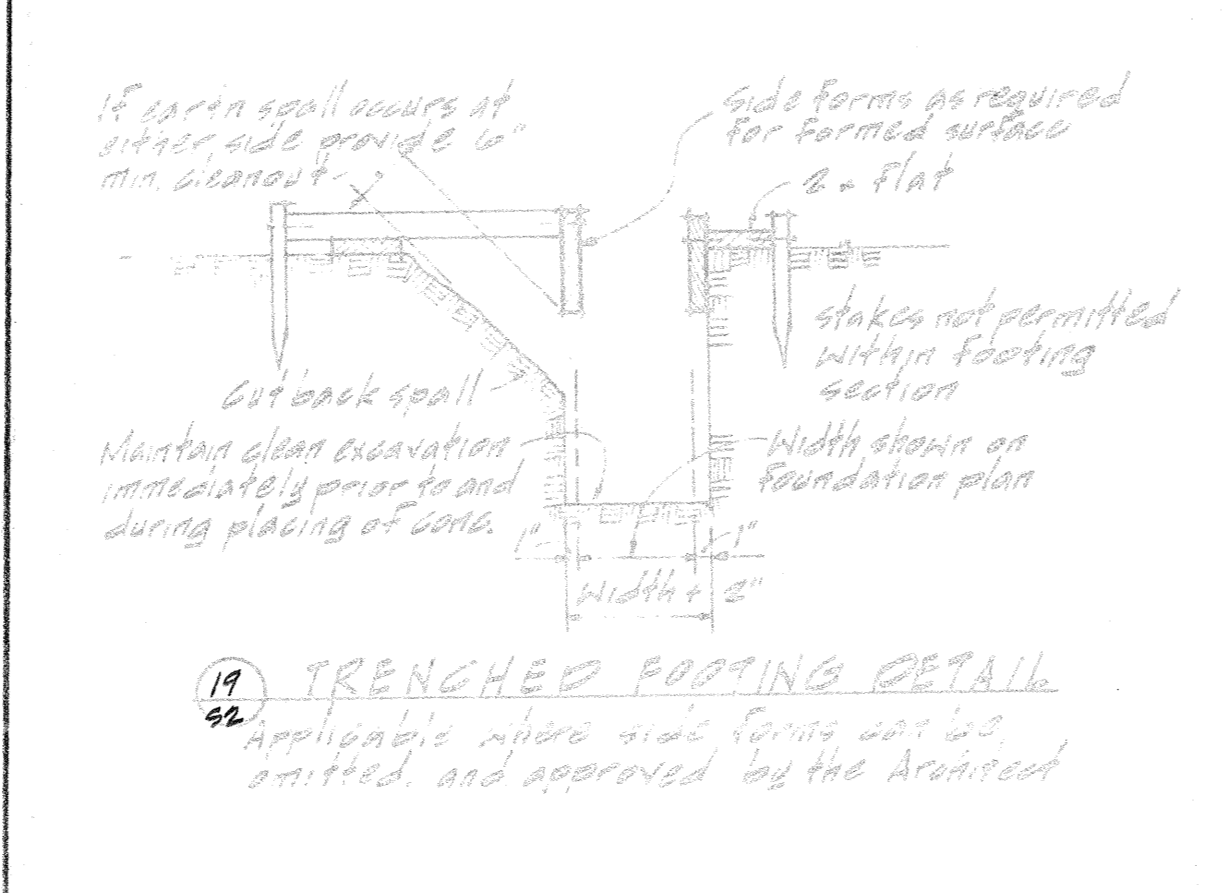 If earth spall occurs at
either side provide 6"
min. cleanout
Side forms as required
for formed surface
2x flat
stakes not permitted
within footing
section
Cut back spall
Maintain clean excavation
immediately prior to and
during placing of conc.
Width shown on
foundation plan
1"
1"
Width + 2"
19
S2
TRENCHED FOOTING DETAIL
Applicable where side forms can be
omitted, and approved by the Architect